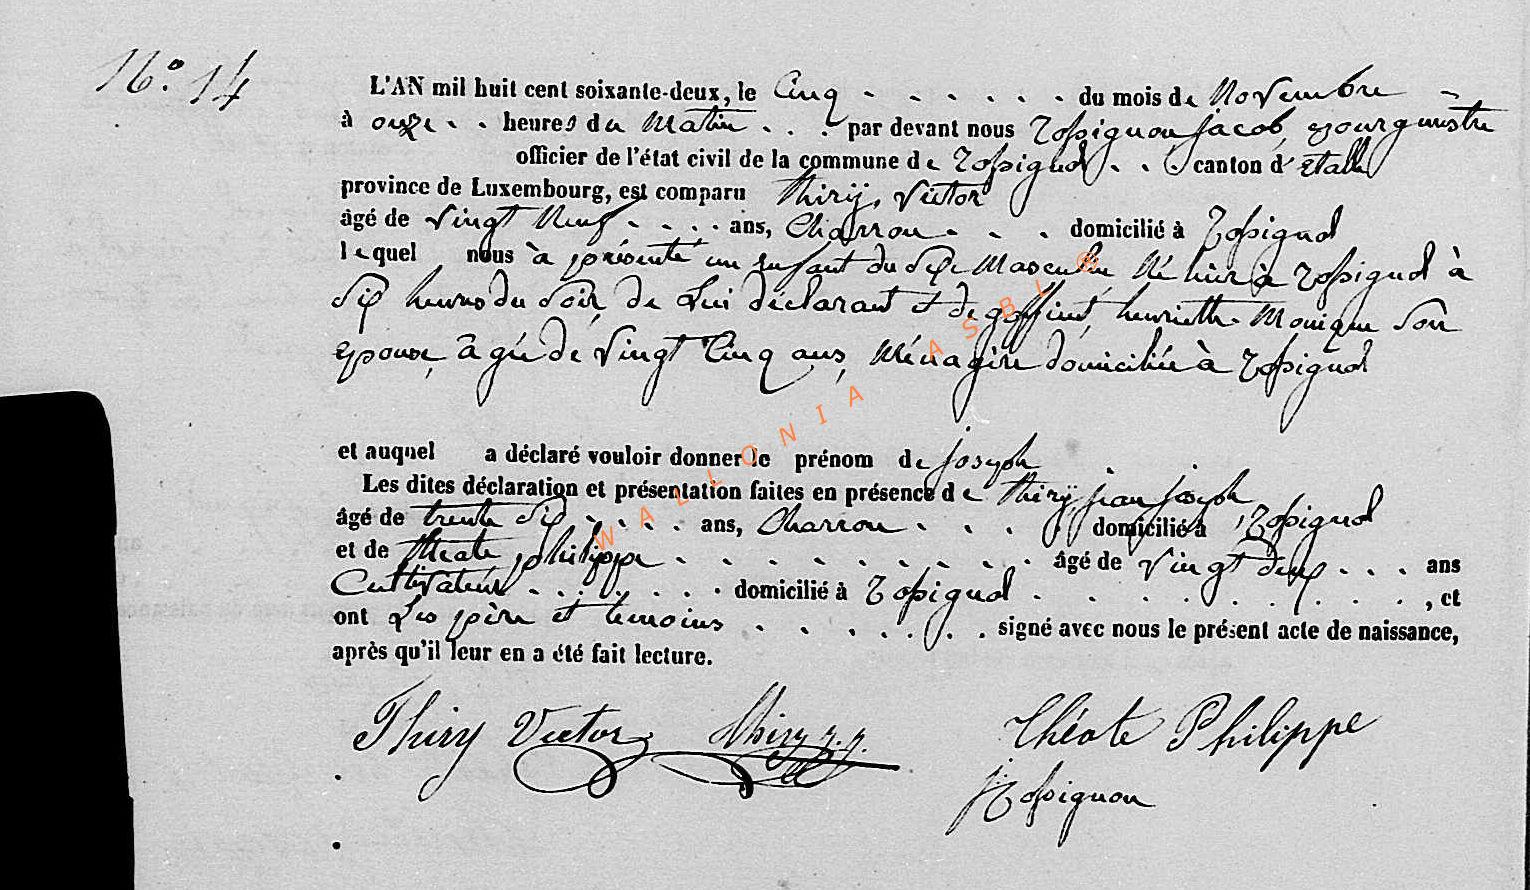 N° 14
L'AN mil huit cent soixante-deux, le Cinq . . . . . . du mois de Novembre
à onze . . heures du Matin . . . par devant nous Rossignon, Jacob, Bourgmestre
officier de l'état civil de la commune de Rossignol . . canton d'Etalle
province de Luxembourg, est comparu thirÿ, Victor
âgé de vingt Neuf . . . . ans, Charron . . . domicilié à Rossignol
lequel nous à présenté un Enfant du Sexe Masculin, Né hier à Rossignol à
Six heures du Soir, de Lui déclarant et de goffinet, henriette Monique Son
Epouse, âgée de vingt Cinq ans, Ménagère domiciliée à Rossignol
et auquel a déclaré vouloir donner le prénom de joseph
Les dites déclaration et présentation faites en présence de thirÿ, jean joseph,
âgé de trente Six . . . . ans, Charron . . . . domicilié à Rossignol
et de théate, philippe . . . . . . . . . . âgé de vingt deux . . . ans
Cultivateur . . . . . . . domicilié à Rossignol . . . . . . . . . , et
ont Les père et temoins . . . . . . signé avec nous le présent acte de naissance,
après qu'il leur en a été fait lecture.
Thiry Victor Thiry j. j. Théate Philippe
j. Rossignon
WALLONIA ASBL ®